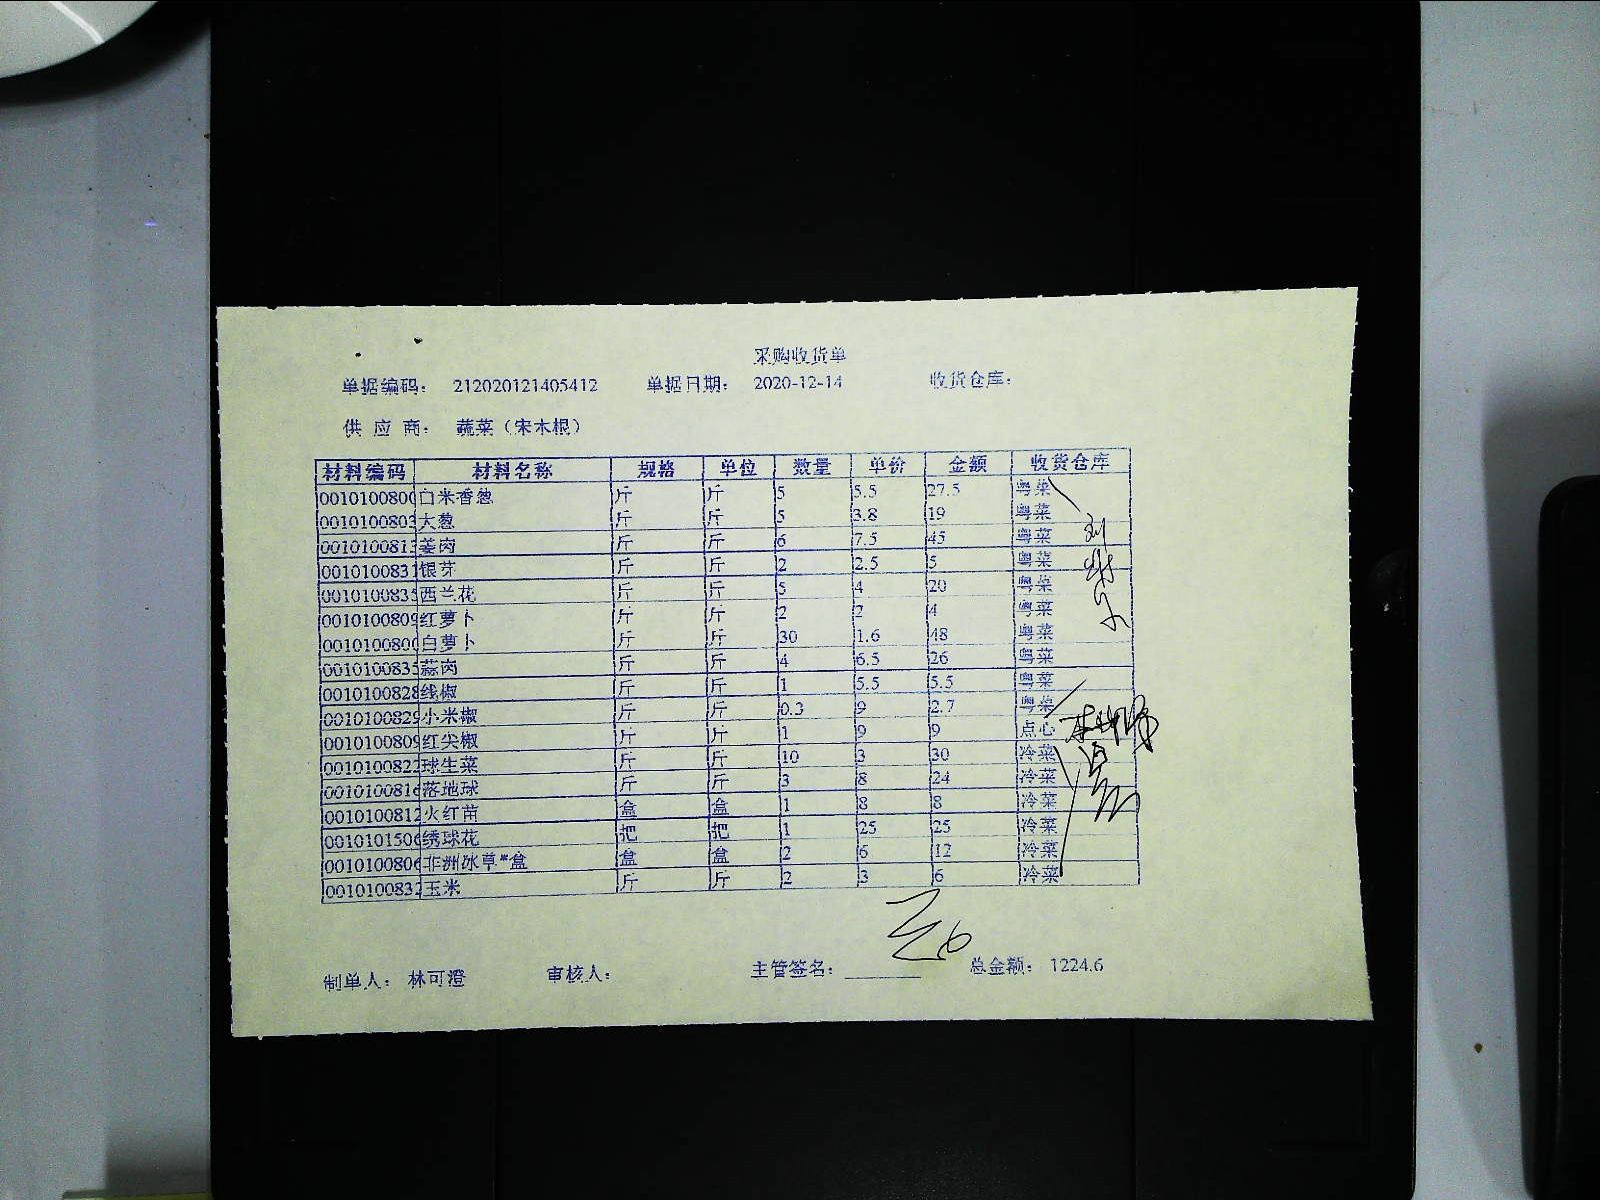 采购收货单
单据编码： 212020121405412 单据日期： 2020-12-14 收货仓库：
供 应 商： 蔬菜（宋木根）
材料编码 材料名称 规格 单位 数量 单价 金额 收货仓库
0010100800 白米香葱 斤 斤 5 5.5 27.5 粤菜
0010100803 大葱 斤 斤 5 3.8 19 粤菜
001010081 姜肉 斤 斤 6 7.5 45 粤菜
0010100831 银芽 斤 斤 2 2.5 5 粤菜
001010083 西兰花 斤 斤 5 4 20 粤菜
0010100809 红萝卜 斤 斤 2 2 4 粤菜
0010100800 白萝卜 斤 斤 30 1.6 48 粤菜
001010083 蒜肉 斤 斤 4 6.5 26 粤菜
0010100828 线椒 斤 斤 1 5.5 5.5 粤菜
0010100829 小米椒 斤 斤 0.3 9 2.7 粤菜
0010100809 红尖椒 斤 斤 1 9 9 点心
0010100822 球生菜 斤 斤 10 3 30 冷菜
0010100816 落地球 斤 斤 3 8 24 冷菜
0010100812 火红苗 盒 盒 1 8 8 冷菜
0010101506 绣球花 把 把 1 25 25 冷菜
0010100806 非洲冰草*盒 盒 盒 2 6 12 冷菜
0010100832 玉米 斤 斤 2 3 6 冷菜
制单人： 林可澄 审核人： 主管签名： 总金额： 1224.6